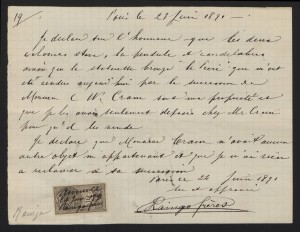 19
Paris le 28 Juin 1891 —
Je déclare sur l'honneur que les deux
colonnes la pendule et candélabres
ainsi que la statuette bronze le que m'ont
été rendus aujourd'hui par la succession de
Monsieur C. W. Cram sont ma propriété et
que je les avais seulement déposés chez Mr Cram
pour qu'il les vende
Je déclare que Monsieur Cram n'avait aucun
autre objet m'appartenant et que je n'ai rien
a réclamer à sa succession
Paris le 28 Juin 1891
lu et approuvé
Raingo frères
Raingo